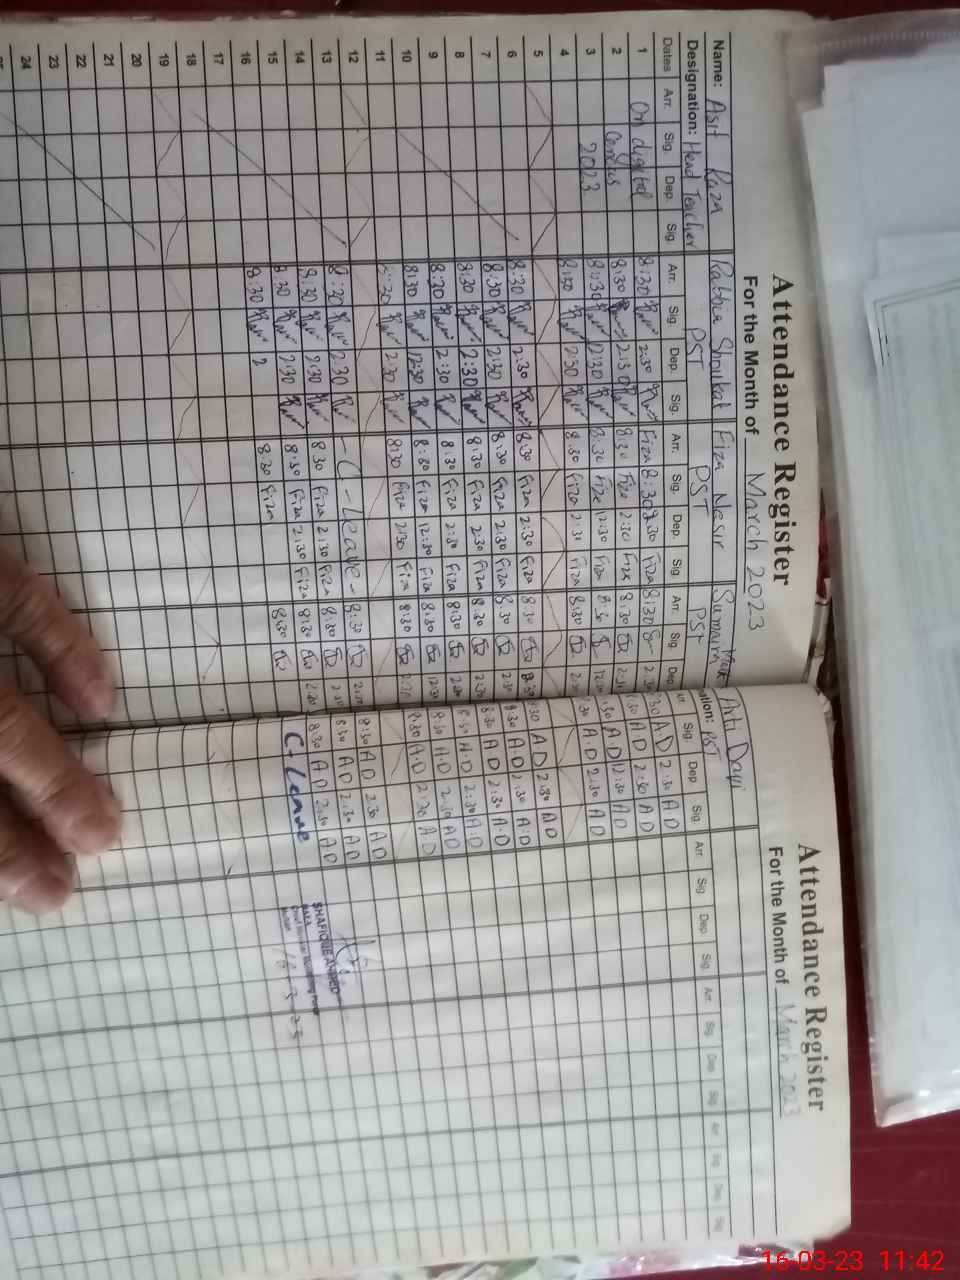 Attendance Register
For the Month of March 2023
Name: Asif Raza Rabbia Shoukat Fiza Nasir Sumaira
Designation: Head Teacher PST PST PST
Dates Arr. Sig. Dep. Sig. Arr. Sig. Dep. Sig. Arr. Sig. Dep. Sig. Arr. Sig. Dep.
1 On digital 8:30 2:30 Fiza 8:30 2:30 Fiza 8:30
2 Census 8:30 2:30 8:30 Fiza 2:30 Fiza 8:30
3 2023 8:30 12:30 8:30 Fiza 12:30 Fiza 8:30
4 8:30 2:30 8:30 Fiza 2:30 Fiza 8:30
5
6 8:30 2:30 8:30 Fiza 2:30 Fiza 8:30
7 8:30 2:30 8:30 Fiza 2:30 Fiza 8:30
8 8:30 2:30 8:30 Fiza 2:30 Fiza 8:30
9 8:30 2:30 8:30 Fiza 2:30 Fiza 8:30
10 8:30 12:30 8:30 Fiza 12:30 Fiza 8:30
11 8:30 2:30 8:30 Fiza 2:30 Fiza 8:30
12
13 8:30 2:30 - C - Leave - 8:30
14 8:30 2:30 8:30 Fiza 2:30 Fiza 8:30
15 8:30 2:30 8:30 Fiza 2:30 Fiza 8:30
16 8:30 2 8:30 Fiza 8:30
17
18
19
20
21
22
23
24
Attendance Register
For the Month of March 2023
Devi
PST
Sig. Dep. Sig. Arr. Sig. Dep. Sig. Arr. Sig. Dep. Sig. Arr. Sig. Dep. Sig.
8:30 A.D 2:30 A.D
8:30 A.D 2:30 A.D
8:30 A.D 12:30 A.D
8:30 A.D 2:30 A.D
8:30 A.D 2:30 A.D
8:30 A.D 2:30 A.D
8:30 A.D 2:30 A.D
8:30 A.D 2:30 A.D
8:30 A.D 2:30 A.D
8:30 A.D 2:30 A.D
8:30 A.D 2:30 A.D
8:30 A.D 2:30 A.D
8:30 A.D 2:30 A.D
C - Leave
SHAFIQUE AHMED
16-3-23
16-03-23 11:42